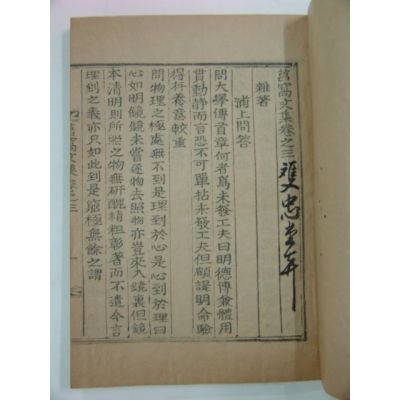 莒窩文集卷之三
雙忠堂弆
雜著
浦上問答
問大學傳首章何者爲未發工夫曰明德傳兼體用
貫動静而言恐不可單拈未發工夫但顧諟明命驗
得杵養意較重
問物理之極處無不到是理到於心是心到於理曰
心如明鏡鏡未嘗逐物去照物亦豈來入鏡裏但鏡
本清明則所照之物無硏醜精粗彰著而不遺今言
理到之義亦只如此到是窮極無餘之謂
窩文集卷之三